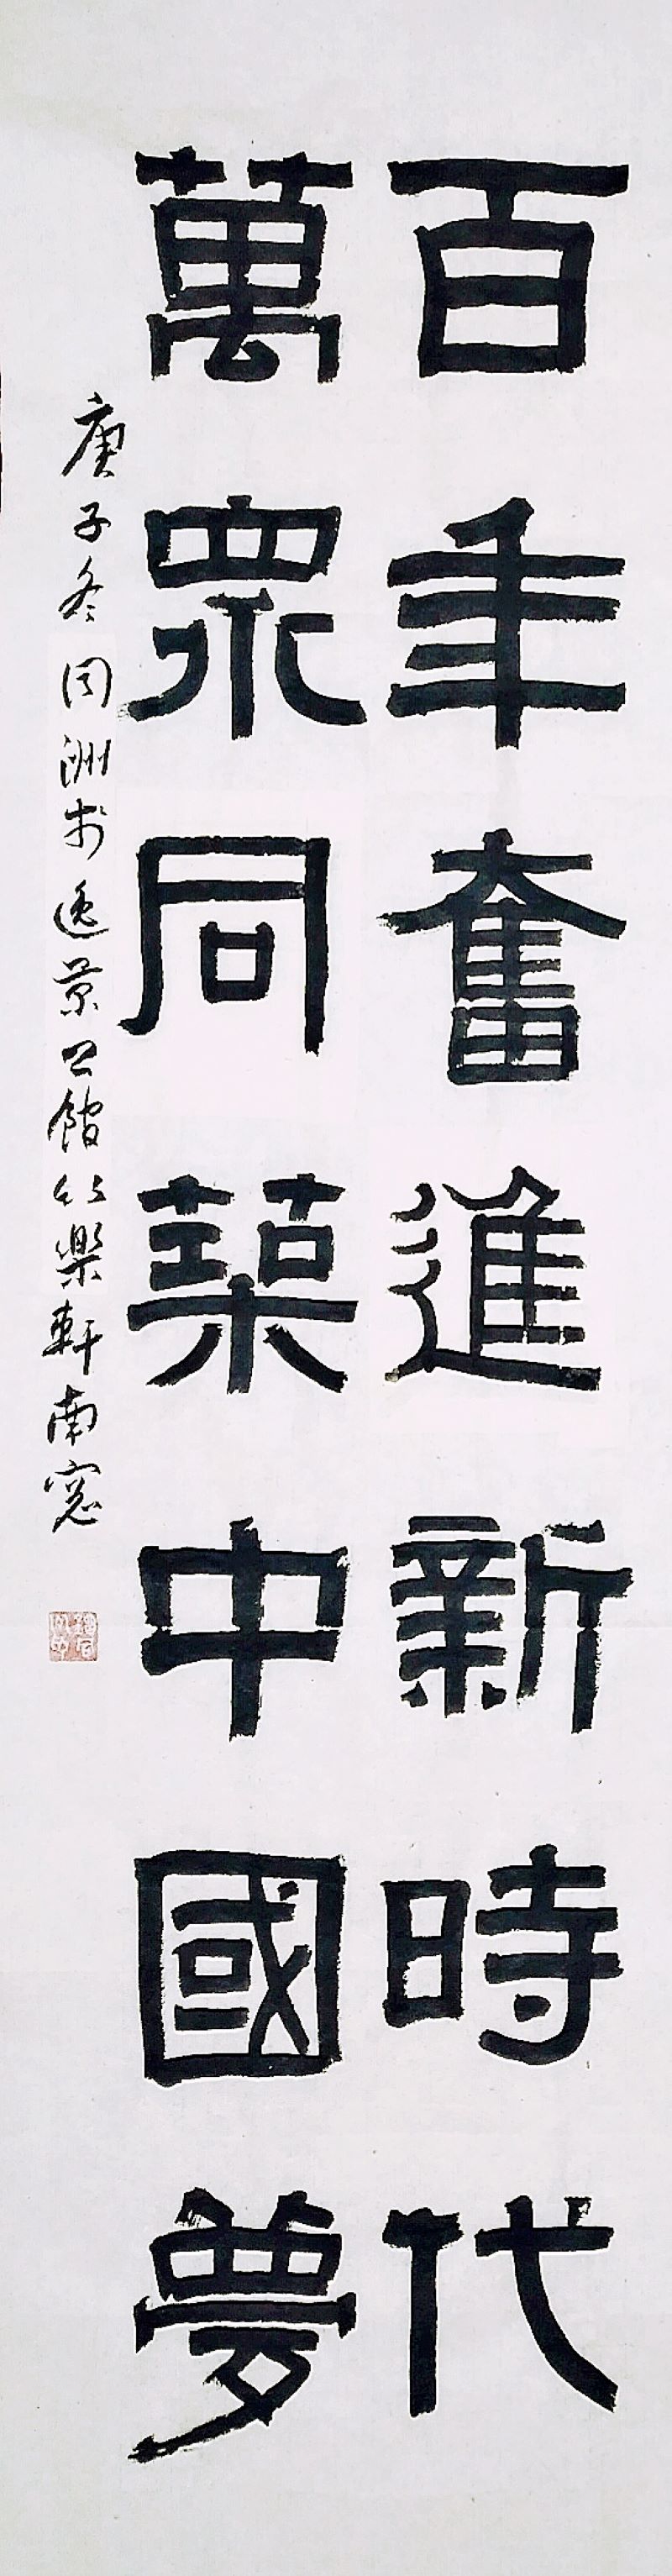 百年奮進新時代
萬眾同築中國夢
庚子冬同洲於逸景公館竹樂軒南窓